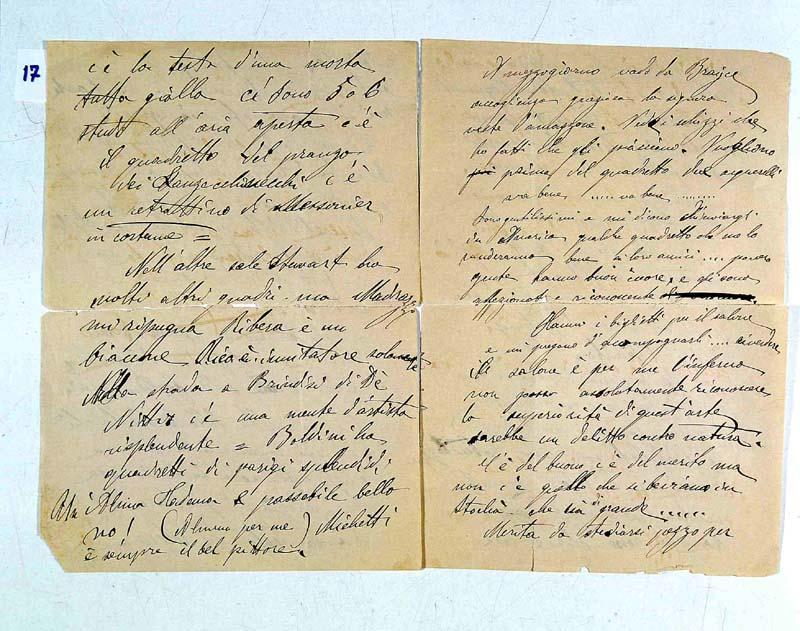 17
c'è la testa d'una morta
tutta gialla ce' sono 5 o 6
studi all'aria aperta c'è
il quadretto del pranzo
dei c'è
un retrattino di Messonier
in costume =
Nell'altre sale Stewart ha
molti altri quadri. ma Madrazo
mi ripugna Ribera è un
biacune Rico è imitatore solamente
Nella strada a Brindisi di De
Nittis c'è una mente d'artista
risplendente = Boldini ha
quadretti di parigi splendidi
Alma è passabile bello
no! (Almeno per me) Michetti
è sempre il bel pittore.
A mezzogiorno vado da
accoglienza graziosa la signora
veste d'amazzone. Vede i schizzi che
ho fatti che gli piacciono. Vogliono
prima del quadretto due acquerelli
va bene ..... va bene .......
Sono gentilissimi e mi dicono d'inviargi
in America qualche quadretto che me lo
venderanno bene ai loro amici .... povera
gente hanno buon cuore, e gli sono
affezionato e riconoscente
Hanno i biglietti per il salone
e mi pregano d'accompagnarli ....
Il salone è per me l'inferno
non posso assolutamente riconoscere
la superiorità di quest'arte
sarebbe un delitto contro natura.
C'è del buono, c'è del merito ma
non c'è quello che si in
che sia di grande ......
Merita da studiarsi pezzo per